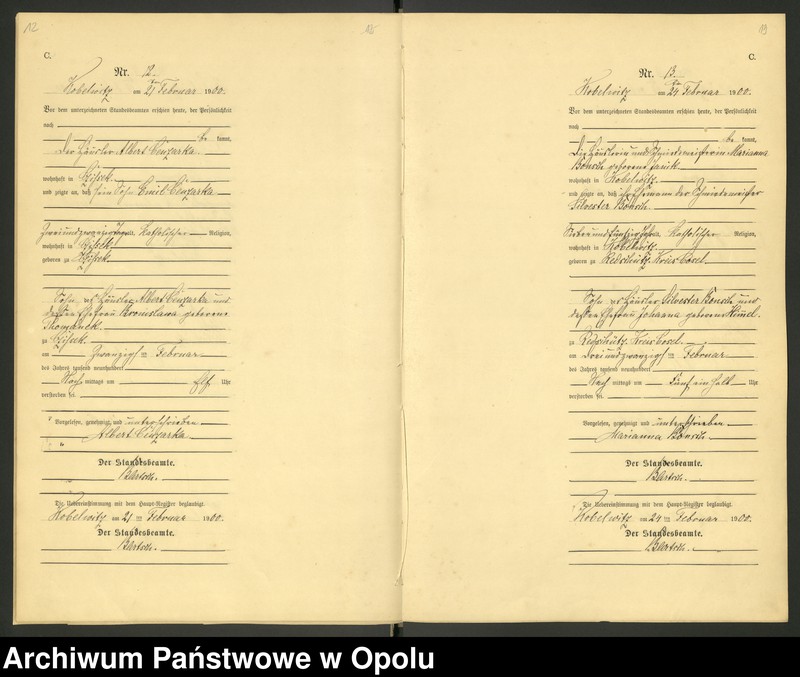 12
15
C.
Nr. 12.
Kobelwitz am 21ten Februar 1900.
Vor dem unterzeichneten Standesbeamten erschien heute, der Persönlichkeit
nach
be kannt,
Der Häusler Albert
wohnhaft in
und zeigte an, daß sein Sohn Emil
Zweiundzwanzig Tage alt, Katholischer Religion,
wohnhaft in
geboren zu
Sohn des Häusler Albert und
dessen Ehefrau Bronislawa geborene
zu
am Zwanzigsten Februar
des Jahres tausend neunhundert
Nach mittags um Elf Uhr
verstorben sei.
Vorgelesen, genehmigt und unterschrieben
Albert
Der Standesbeamte.
Bartsch.
Die Uebereinstimmung mit dem Haupt-Register beglaubigt.
Kobelwitz am 21ten Februar 1900.
Der Standesbeamte.
Bartsch.
13
C.
Nr. 13.
Kobelwitz am 24ten Februar 1900.
Vor dem unterzeichneten Standesbeamten erschien heute, der Persönlichkeit
nach
be kannt,
Die Häuslerin und Schmiedemeisterin Marianna
Bonsch geborene Janik
wohnhaft in Kobelwitz
und zeigte an, daß ihr Ehemann der Schmiedemeister
Silvester Bonsch
Siebenundfünfzig Jahre alt, Katholischer Religion,
wohnhaft in Kobelwitz
geboren zu Kreis Cosel
Sohn des Häusler Silvester Bonsch und
dessen Ehefrau Johanna geborene
zu Kreis Cosel
am Dreiundzwanzigsten Februar
des Jahres tausend neunhundert
Nach mittags um Fünf ein halb Uhr
verstorben sei.
Vorgelesen, genehmigt und unterschrieben
Marianna Bonsch
Der Standesbeamte.
Bartsch.
Die Uebereinstimmung mit dem Haupt-Register beglaubigt.
Kobelwitz am 24ten Februar 1900.
Der Standesbeamte.
Bartsch.
Archiwum Państwowe w Opolu